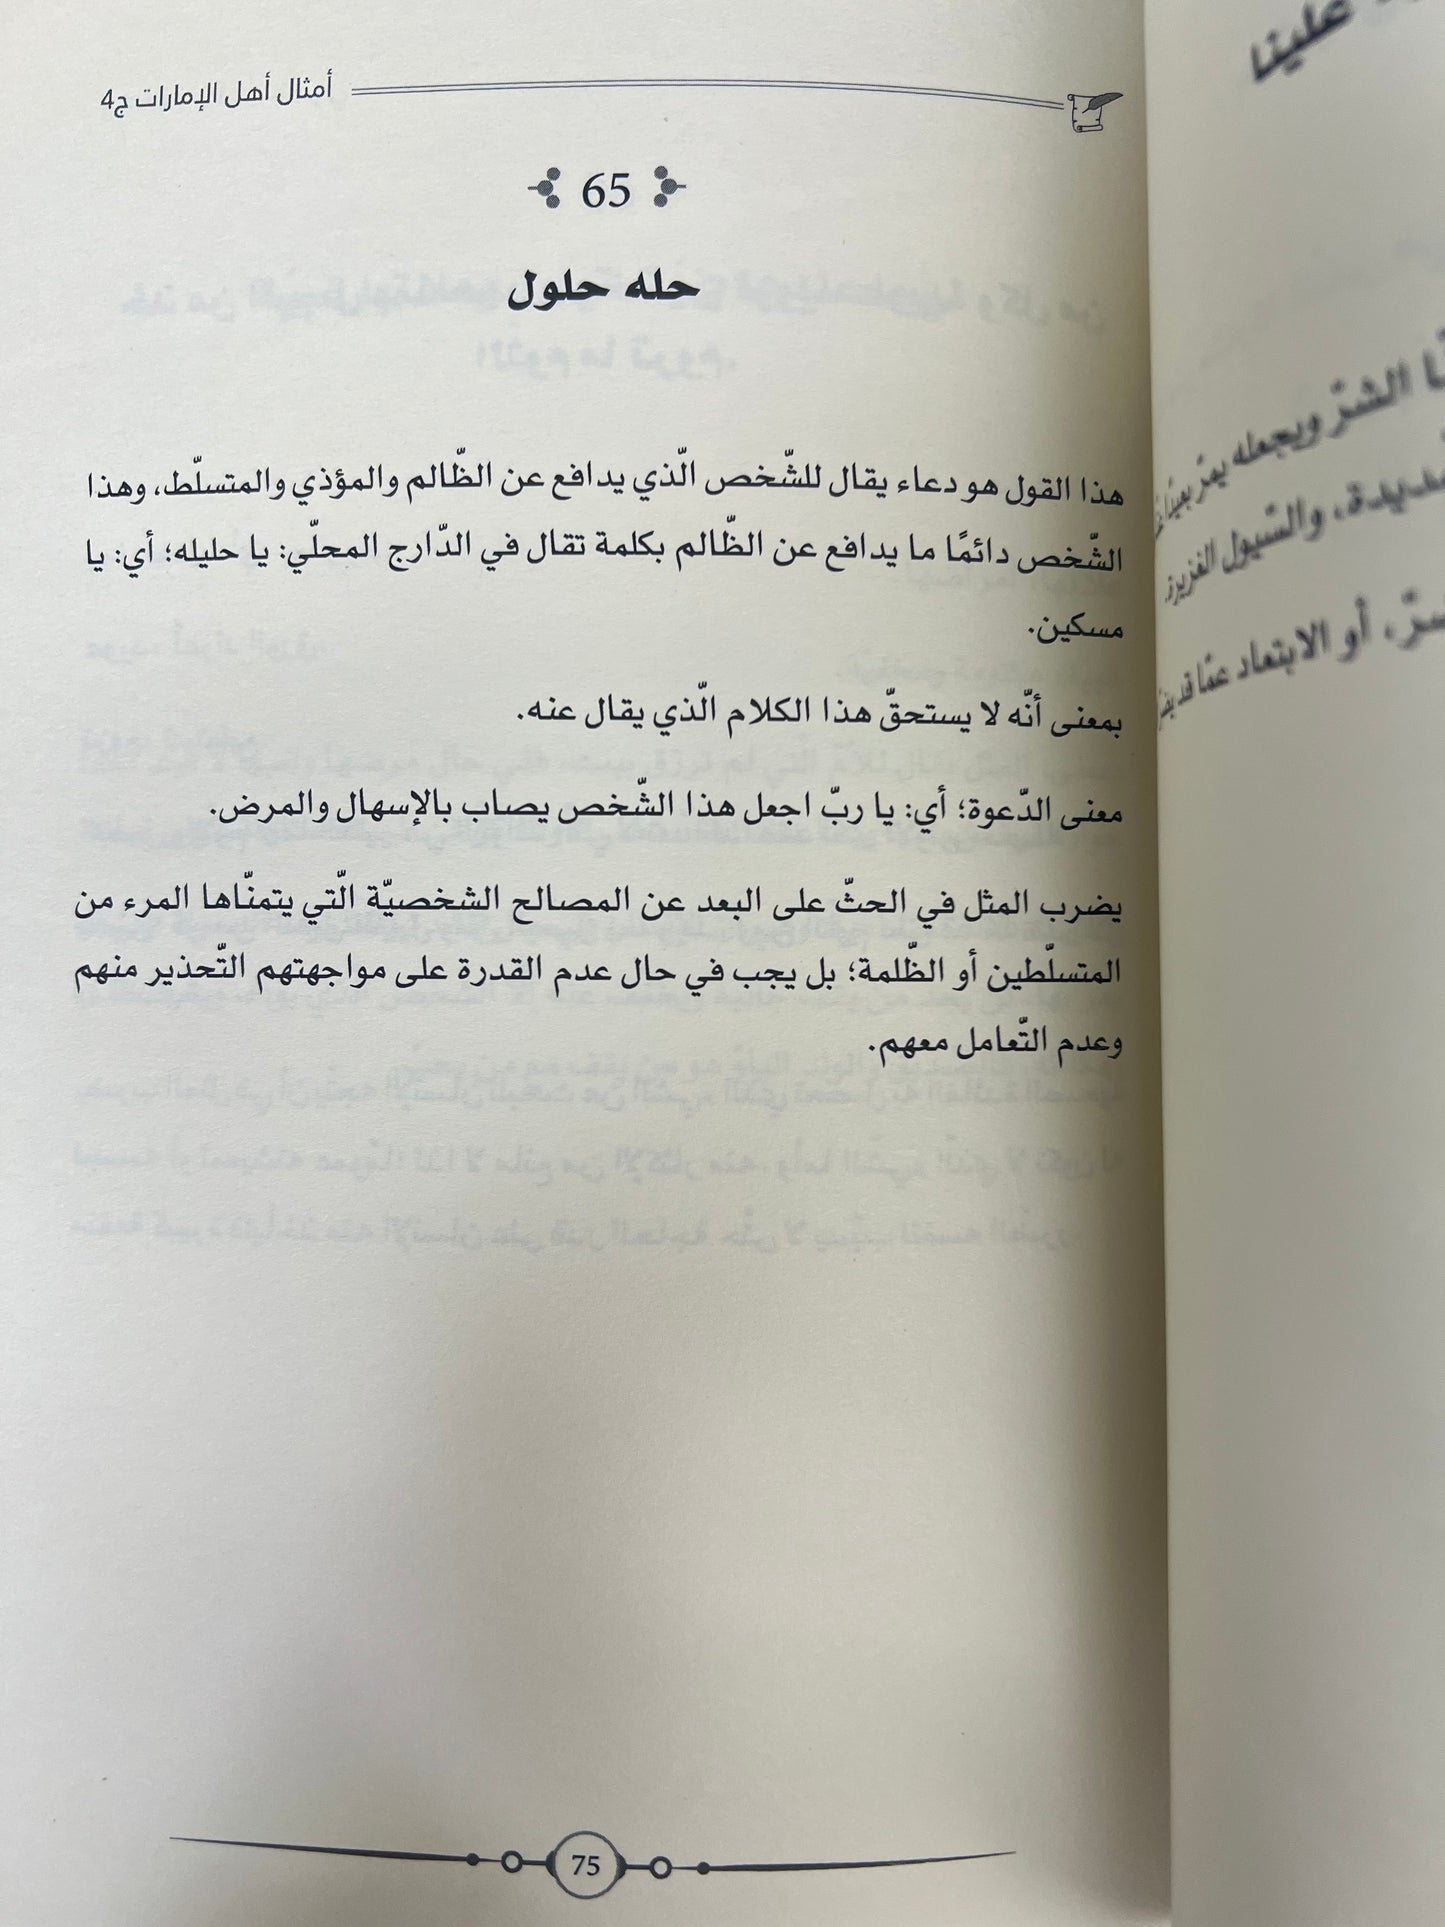 أمثال أهل الإمارات ج4
65
حله حلول
هذا القول هو دعاء يقال للشّخص الّذي يدافع عن الظّالم والمؤذي والمتسلّط، وهذا
الشّخص دائمًا ما يدافع عن الظّالم بكلمة تقال في الدّارج المحلّي: يا حليله؛ أي: يا
مسكين.
بمعنى أنّه لا يستحقّ هذا الكلام الّذي يقال عنه.
معنى الدّعوة؛ أي: يا ربّ اجعل هذا الشّخص يصاب بالإسهال والمرض.
يضرب المثل في الحثّ على البعد عن المصالح الشخصيّة الّتي يتمنّاها المرء من
المتسلّطين أو الظّلمة؛ بل يجب في حال عدم القدرة على مواجهتهم التّحذير منهم
وعدم التّعامل معهم.
75
علينا
الشرّ ويجعله يمرّ بعيدًا
والسيول الغزيرة
أو الابتعاد عمّا قد